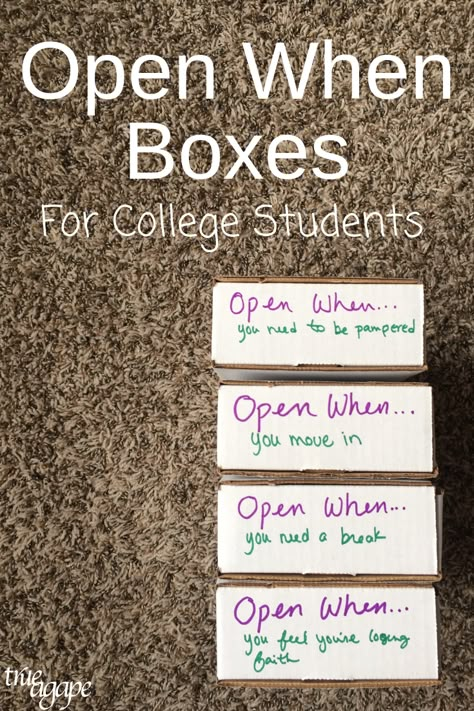 Open When
Boxes
For College Students
Open When...
you need to be pampered
Open When...
you move in
Open When...
you need a break
Open When...
you feel you're losing
faith
true
agape